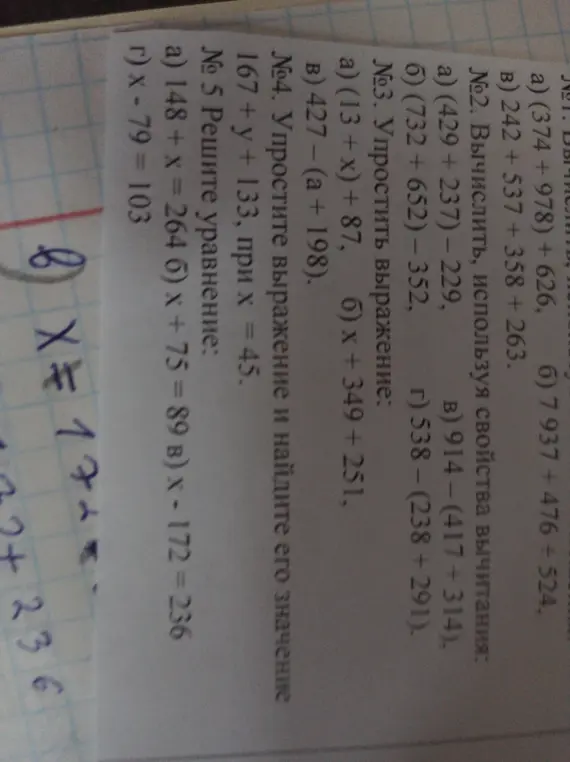 а) (374 + 978) + 626, б) 7 937 + 476 + 524,
в) 242 + 537 + 358 + 263.
№2. Вычислить, используя свойства вычитания:
а) (429 + 237) – 229, в) 914 – (417 + 314),
б) (732 + 652) – 352, г) 538 – (238 + 291).
№3. Упростить выражение:
а) (13 + х) + 87, б) х + 349 + 251,
в) 427 – (а + 198).
№4. Упростите выражение и найдите его значение
167 + у + 133, при х = 45.
№ 5 Решите уравнение:
а) 148 + х = 264 б) х + 75 = 89 в) х - 172 = 236
г) х - 79 = 103
в) х = 172
+ 236